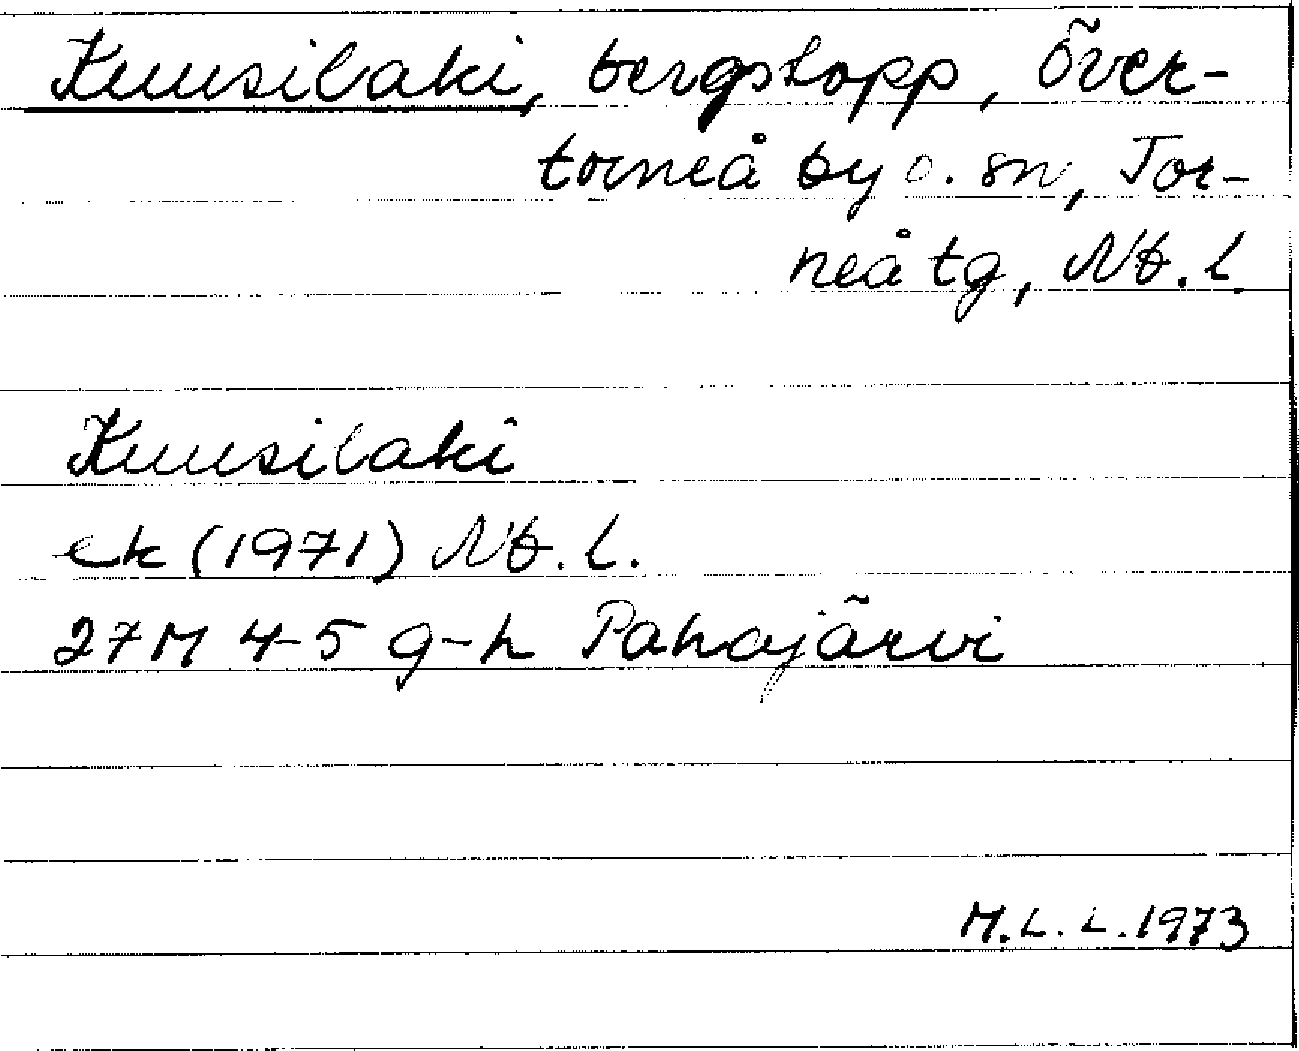 Kuusilaki, bergstopp, Över-
torneå by o. sn, Tor-
neå tg, Nb. l.
Kuusilaki
ek (1971) Nb. l.
27M 4-5 g-h Pahajärvi
M.L.L. 1973